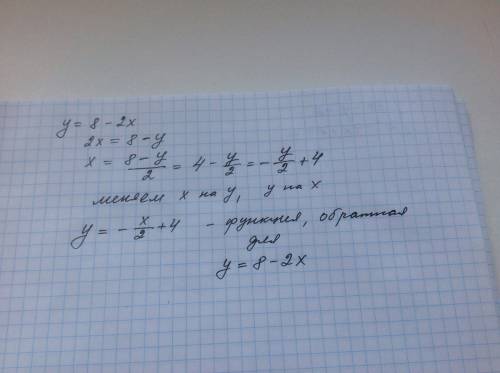 y = 8 - 2x
2x = 8 - y
x = \frac{8 - y}{2} = 4 - \frac{y}{2} = -\frac{y}{2} + 4
меняем x на y, y на x
y = -\frac{x}{2} + 4 - функция, обратная
для
y = 8 - 2x